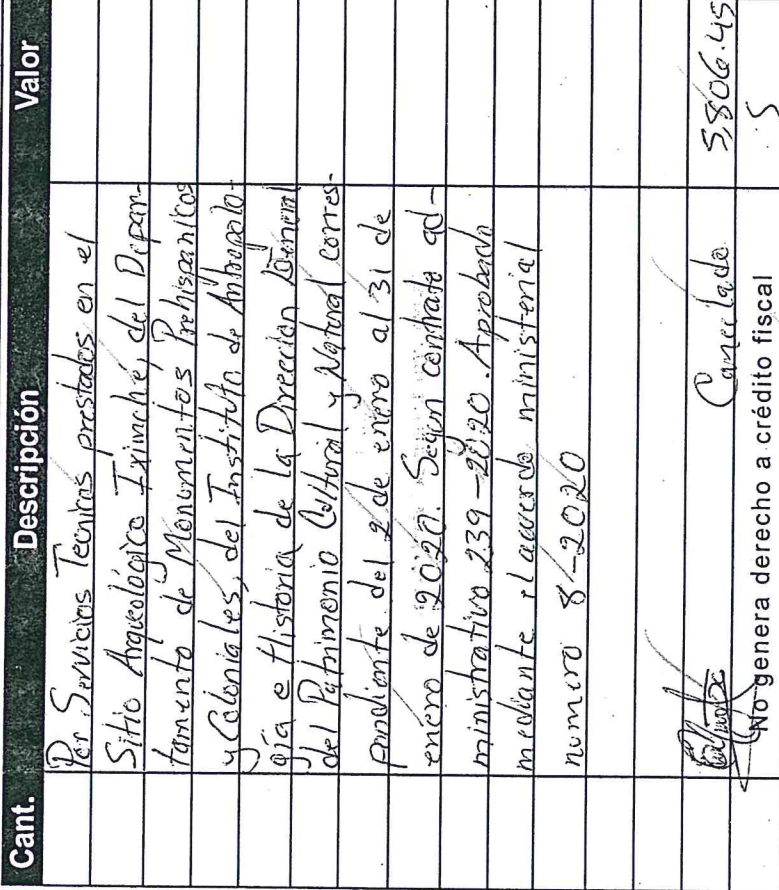 Cant. Descripción Valor
Por Servicios Tecnicos prestados en el
Sitio Arqueológico Iximché, del Depar-
tamento de Monumentos Prehispanicos
y Coloniales, del Instituto de Antropolo-
gía e Historia de la Dirección General
del Patrimonio Cultural y Natural corres-
pondiente del 2 de enero al 31 de
enero de 2020. Segun contrato ad-
ministrativo 239-2020. Aprobado
mediante el acuerdo ministerial
numero 8-2020
Cancelado 5,806.45
No genera derecho a crédito fiscal